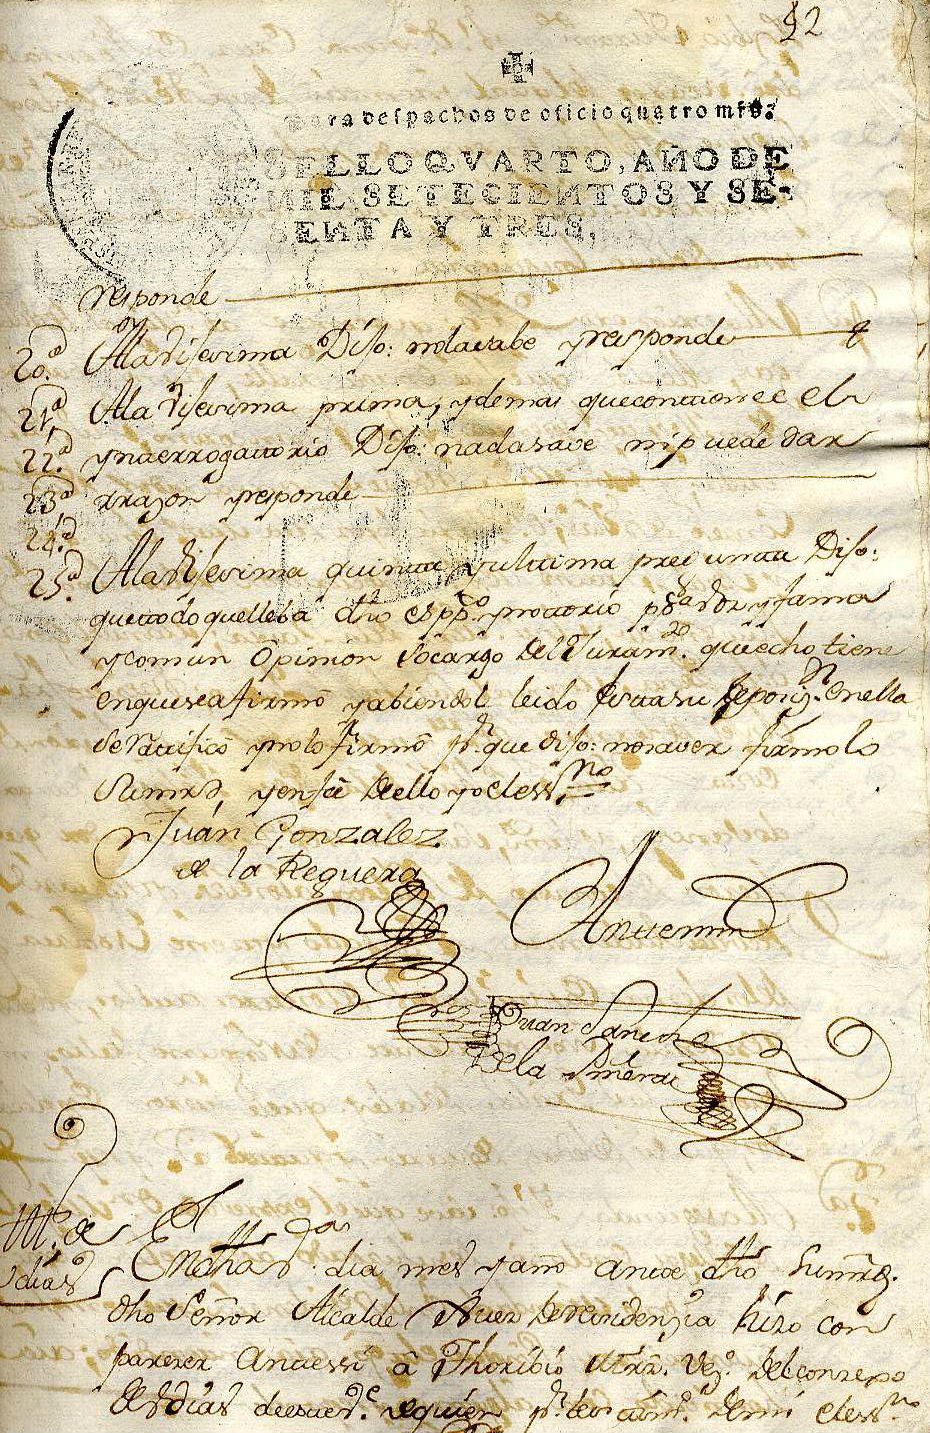 92
Para despachos de oficio quatro mrs.
SELLO QVARTO, AÑO DE
MIL SETECIENTOS Y SE-
SENTA Y TRES.
responde
20ª Ala Visesima Dijo: nolasabe y responde
21ª Ala Visesima prima, y demas que contiene el
22ª ynterrogattorio Dijo: nada save ni puede dar
23ª rrazon y responde
24ª
25ª Ala Visesima quintta y ulttima preguntta Dijo:
que ttodo lleba dho es ppco. y nottorio
y comun Opinion so cargo del Juramto. que echo tiene
en que se afirmó y abiendole leido esta su deposizn. en ella
se rattificó y no lo firmó pr. que dijo: no saver firmolo
Su mrd. y en fee de ello yo el essno.
Juán Gonzalez
de la Reguera
Ante mi
Juan Sanchez
de la
de
dias
En dha dia mes y año antte dho Su mrd.
dho Señor Alcalde Juez de residenzia hizo con
parezer antte si â Thoribio Vezº. del conzejo
de dias de quien pr. ante mi el essno.